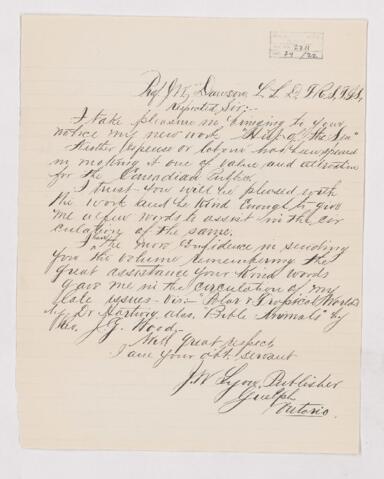 2211
24 / 22
Prof J. W. Dawson L. L. D, F. R. S, F. G. S,
Respected Sir:-
I take pleasure in bringing to your
notice my new work "Hist of the Sea"
Neither expense or labour has been spared
in making it one of value, and attractive
for the Canadian public
I trust you will be pleased with
the work and be kind enough to give
me a few words to assist in the cir
culation of the same.
I have the more confidence in sending
you the volume remembering the
great assistance your kind words
gave me in the circulation of my
late issues - viz:- "Polar & Tropical Worlds"
by Dr Hartwig, also, "Bible Animals" by
Rev. J. G. Wood,-
With great respect
I am your obt. servant
J. W. Lyon, Publisher
Guelph
Ontario.